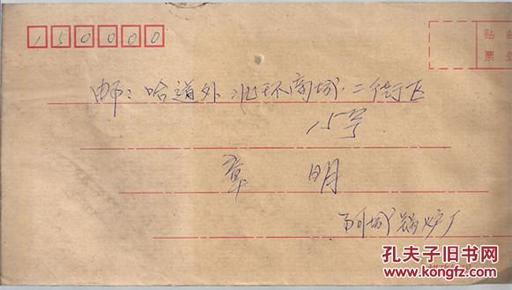 150000
贴
票
邮：哈道外北环商城二街区
15号
章 明
阿城锅炉厂
孔夫子旧书网
www.kongfz.com